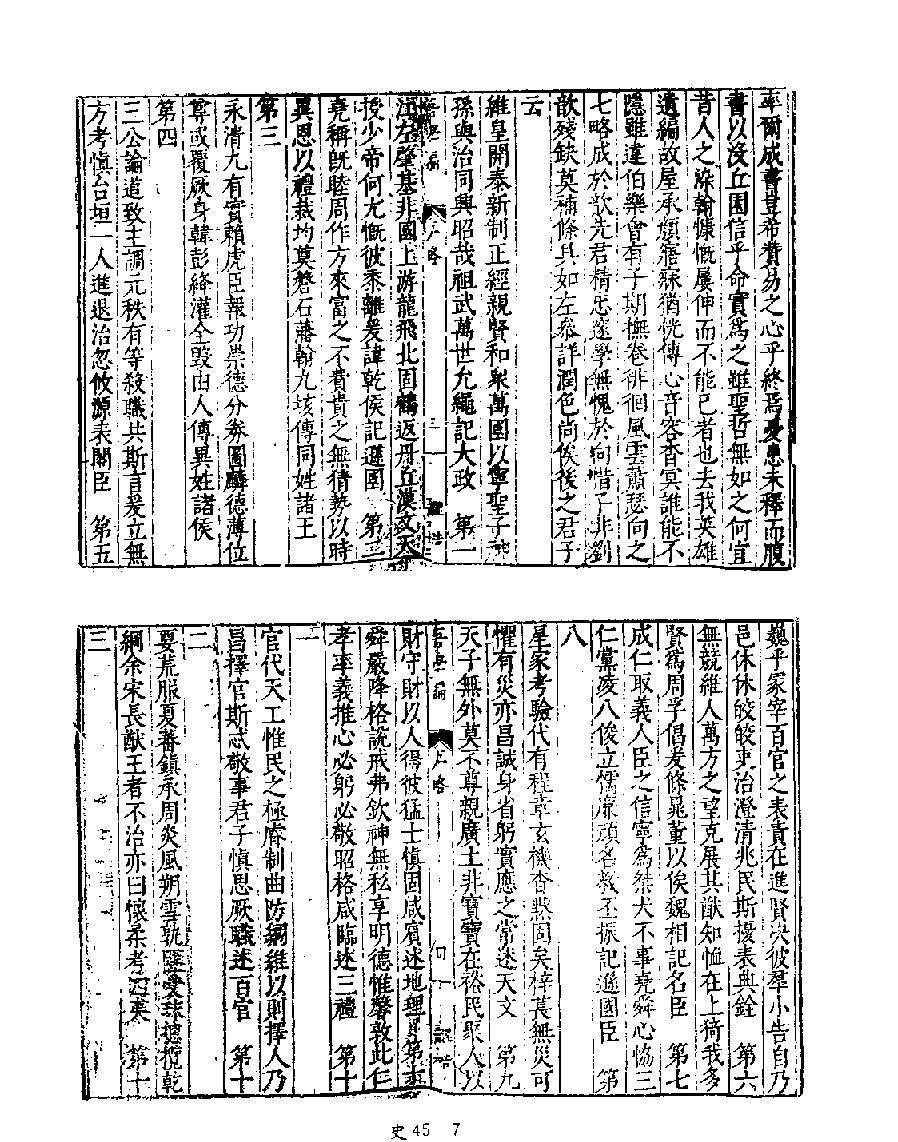 率爾成書豈希贊易之心乎終焉憂患未釋而腹
書以沒丘園信乎命實爲之雖聖哲無如之何宜
昔人之染翰慷慨屢伸而不能已者也去我英雄
遺編故屋承顏寤寐猶恍傳心音容杳冥誰能不
隱雖違伯樂會有子期撫卷徘徊風雲蕭瑟向之
七略成於歆先君精忠遠學無愧於向惜予非劉
歆殘缺莫補條具如左參詳潤色尚俟後之君子
云
維皇開泰新制正經親賢和衆萬國以寧聖子神
孫與治同興昭哉祖武萬世允繩記大政　第一
江左肇基非國上游龍飛北固鶴返丹丘漢文天
授少帝何尤慨彼黍離爰諱乾侯記遜國　第二
堯稱既睦周作方來富之不費貴之無猜勢以時
異恩以禮裁均奠磐石藩翰九垓傳同姓諸王
第三
永清九有實賴虎臣報功崇德分券圖麟德薄位
尊或覆厥身韓彭絳灌全毀由人傳異姓諸侯
第四
三公論道致主調元秩有等殺職共斯言爰立無
方考慎台垣一人進退治忽攸源表閣臣　第五
巍乎冢宰百官之表責在進賢決彼羣小告自乃
邑休休皎皎吏治澄清兆民斯擾表典銓　第六
無競維人萬方之望克展其猷知恤在上猗我多
賢爲周孚倡爰條晁董以俟魏相記名臣　第七
成仁取義人臣之信寧爲桀犬不事堯舜心恊三
仁黨凌八俊立懦廉頑名教丕振記遜國臣　第
八
星家考驗代有程章玄機杳默固矣梓萇無災可
懼有災亦昌誠身省躬實應之常述天文　第九
天子無外莫不尊親廣土非寶寶在裕民聚人以
財守財以人得彼猛士慎固咸賓述地理　第十
舜嚴降格說戒弗欽神無私享明德惟馨敦此仁
孝率義推心必躬必敬昭格咸臨述三禮　第十
一
官代天工惟民之極睿制曲防綱維以則擇人乃
昌擇官斯忒敬事君子慎思厥職述百官　第十
二
要荒服夏蕃鎮承周炎風朔雪孰匪受
綱余宋長猷王者不治亦曰懷柔考四夷　第十
三
史 45　7